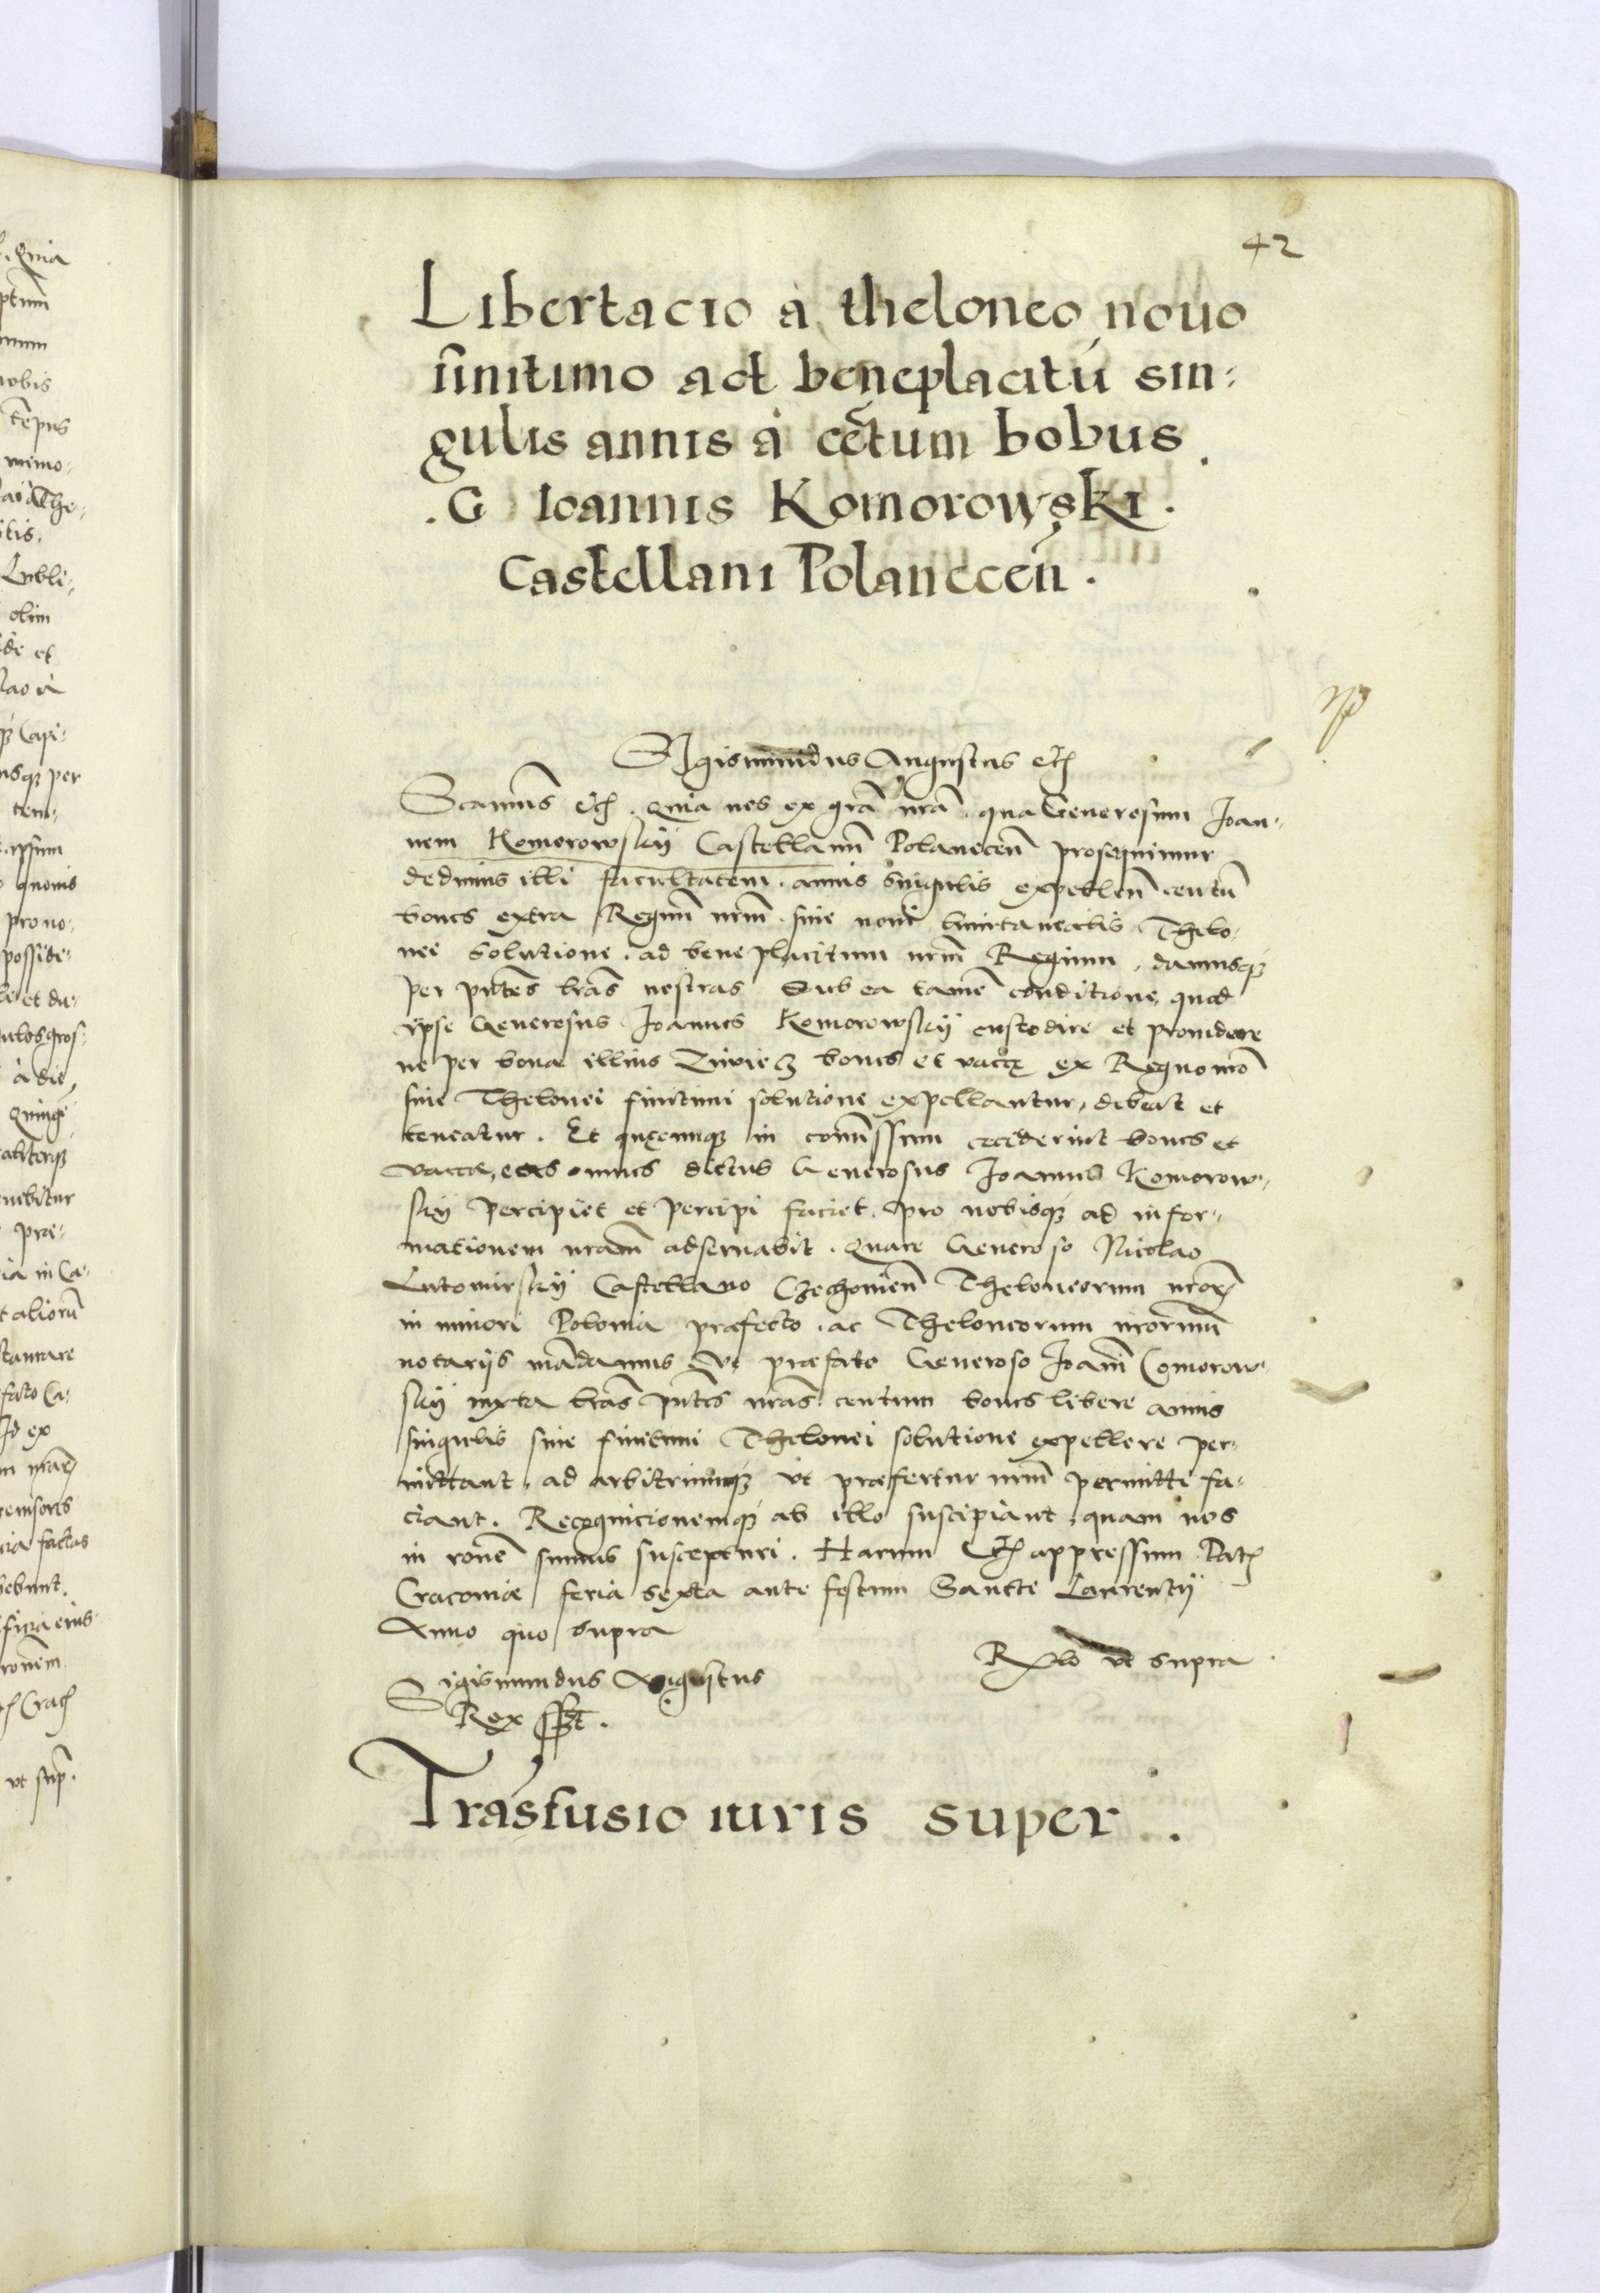 42
Libertacio à theloneo nouo
finitimo ad beneplacitū sin-
gulis annis à cētum bobus
. G Ioannis Komorowski .
Castellani Polanecēn .
Sigismundus Augustus etc̃
Scanūs etc̃ . Quia nos ex grā nrā . qua Generosum Joan-
nem Komorowskÿ Castellanū Polanecēn prosequimur
dedimus illi facultatem . annis singulis expellēn centū
boues extra Regnū nrm̄ . sine noui Thelo-
nei solutione . ad beneplacitum nrm̄ Regium . damusq3
per pn̄tes lrās nostras Sub ea tamē conditione, quod
ipse Generosus Joannes Komorowskÿ custodire et prouidere
ne per bona illius Ziwiecz boues et vaccę ex Regno nrō
sine Thelonei finitimi solutione expellantur, debeat et
teneatur . Et quęcunq3 in comissum ceciderint boues et
vaccæ, eas omnes dictus Generosus Joannes Komorow-
skÿ percipiet et percipi faciet . pro nobisq3 ad infor-
mationem nram̄ adseruabit . Quare Generoso Nicolao
Lutomirskÿ Castellano Czechouiēn Theloneorum nror̃
in minori Polonia præfecto . ac Theloneorum nrorum̄
notarijs mādamus Vt præfato Generoso Joanī Comorow-
skÿ iuxta lrās pn̄tes nrās centum boues libere annis
singulis sine finitimi Thelonei solutione expellere per-
mittant . ad arbitriumq3 vt præfertur nrm̄ permitti fa-
ciant . Recognicionemq3 ab illo suscipiant, quam nos
in ronē sumus suscepturi . Harum etc̃ appressum . Dat̃
Cracouiæ feria sexta ante festum Sancti Laurentij
Anno quo supra
Rlo vt supra
Sigismundus Augustus
Rex sst .
Trāsfusio iuris super .